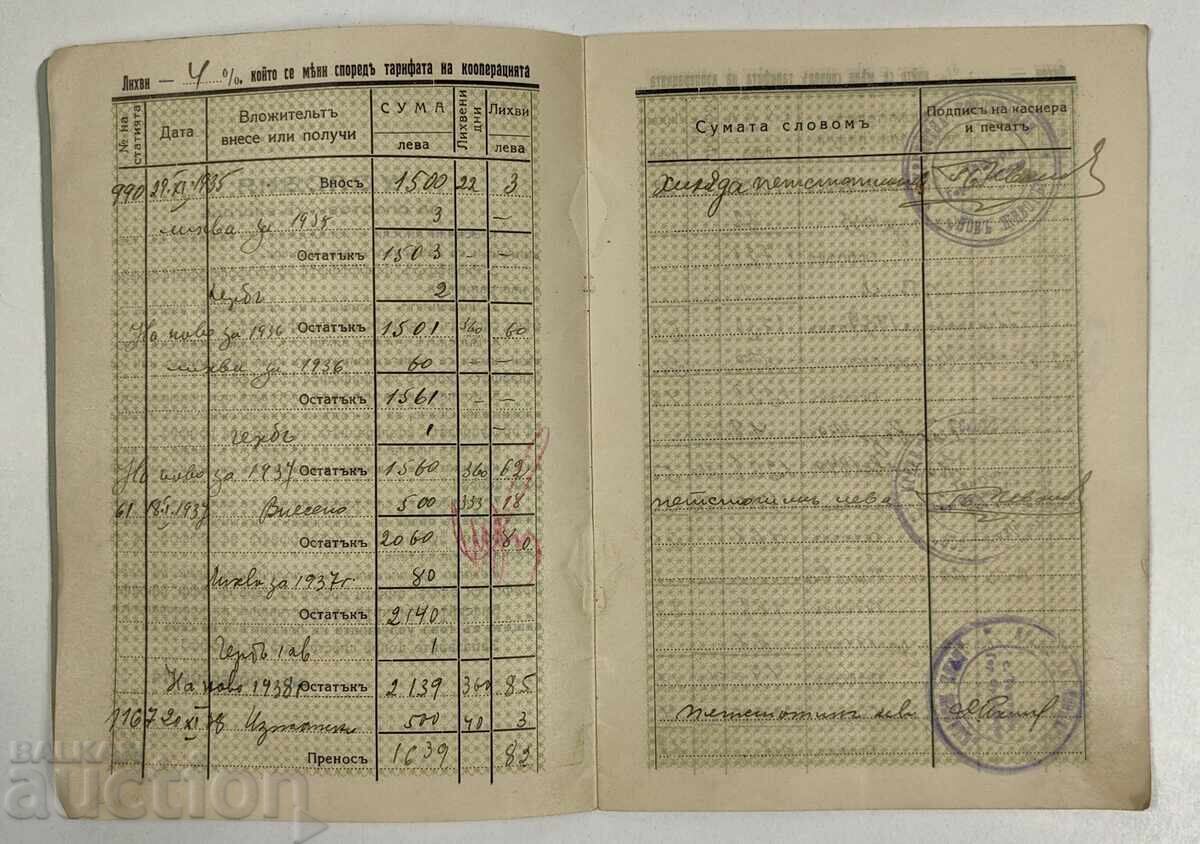 Лихви — 4 %, който се мѣни споредъ тарифата на кооперацията
№ на статията Дата Вложительтъ внесе или получи СУМА лева Лихвени дни Лихви лева
990 29.XI.1935 Вносъ 1500 22 3
лихва за 1935 3 —
Остатъкъ 1503 — —
гербъ 2
На ново за 1936 Остатъкъ 1501 360 60
лихва за 1936 60 — —
Остатъкъ 1561 — —
гербъ 1 —
На ново за 1937 Остатъкъ 1560 360 62
61 18.I.1937 Внесено 500 333 18
Остатъкъ 2060 80
Лихва за 1937 г. 80
Остатъкъ 2140
Гербъ 1 лв 1
На ново 1938 г Остатъкъ 2139 360 85
1167 20.XI 38 500 40 3
Преносъ 1639 82
Сумата словомъ Подписъ на касиера и печатъ
Хиляда петстотинъ
петстотинъ лева
петстотинъ лева
BALKAN
auction